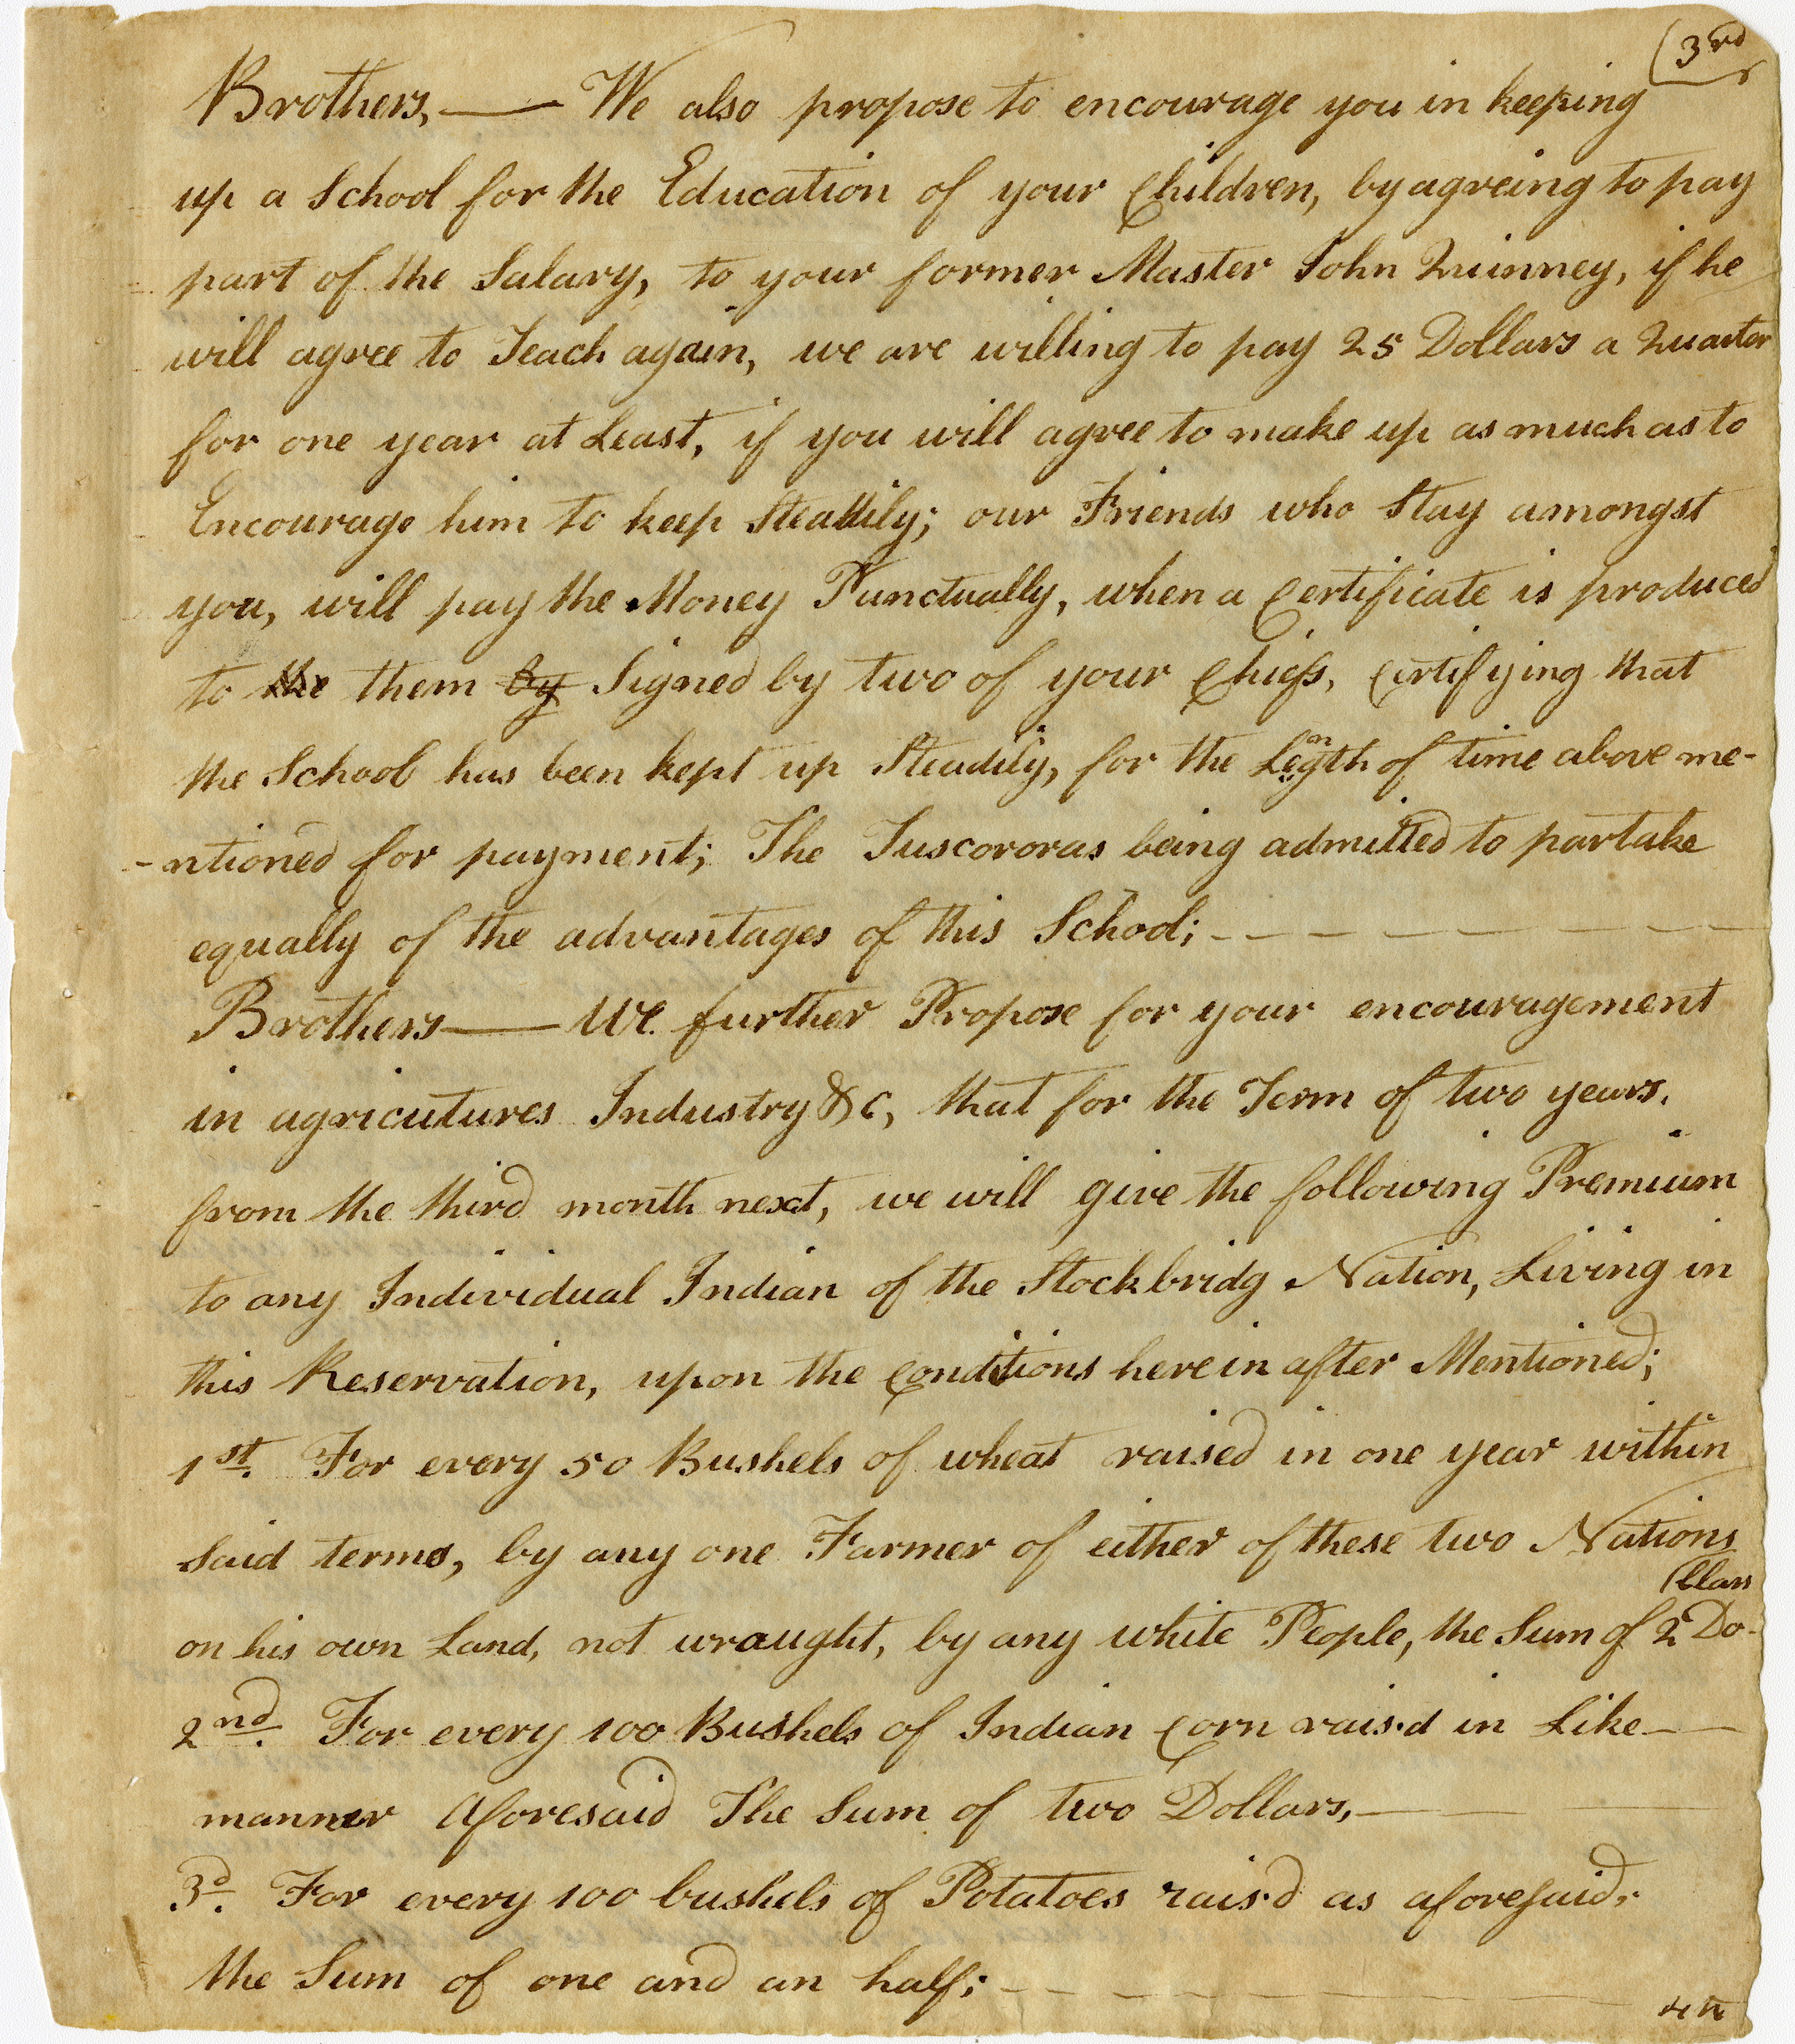 (3rd
Brothers,— We also propose to encourage you in keeping
up a School for the Education of your Children, by agreing to pay
part of the Salary, to your former Master John Quinney, if he
will agree to Teach again, we are willing to pay 25 Dollars a Quarter
for one year at Least, if you will agree to make up as much as to
Encourage him to keep Steadily; our Friends who Stay amongst
you, will pay the Money Punctually, when a Certificate is produced
to the them by Signed by two of your Chiefs, Certifying that
the School has been kept up Steadily, for the Length of time above me-
-ntioned for payment; The Tuscororas being admitted to partake
equally of the advantages of this School; - - - - - - - -
Brothers— We further Propose for your encouragement
in agricutures Industry &c, that for the Term of two years.
from the third month next, we will give the following Premium
to any Individual Indian of the Stockbridg Nation, Living in
this Reservation, upon the Conditions herein after Mentioned;
1st. For every 50 Bushels of wheat raised in one year within
Said terms, by any one Farmer of either of these two Nations
on his own Land, not wraught, by any white People, the Sum of 2 Do-
(llars
2nd. For every 100 Bushels of Indian Corn rais.d in Like—
manner Aforesaid The Sum of two Dollars,—
3d. For every 100 bushels of Potatoes rais'd as aforesaid,
the Sum of one and an half; - - - - - - -
4th